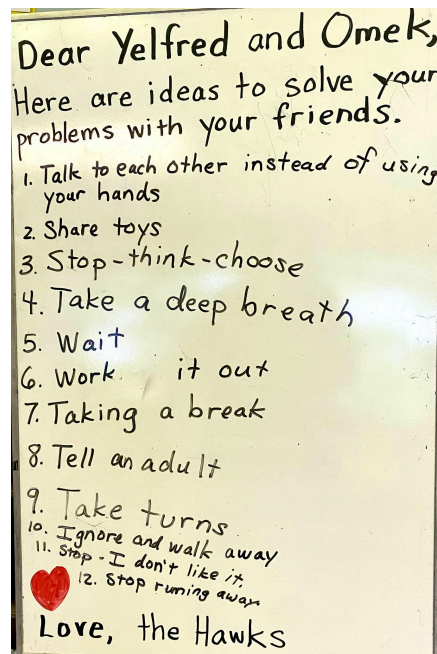 Dear Yelfred and Omek,
Here are ideas to solve your
problems with your friends.
1. Talk to each other instead of using
your hands
2. Share toys
3. Stop-think-choose
4. Take a deep breath
5. Wait
6. Work it out
7. Taking a break
8. Tell an adult
9. Take turns
10. Ignore and walk away
11. Stop - I don't like it.
12. Stop runing away.
Love, the Hawks